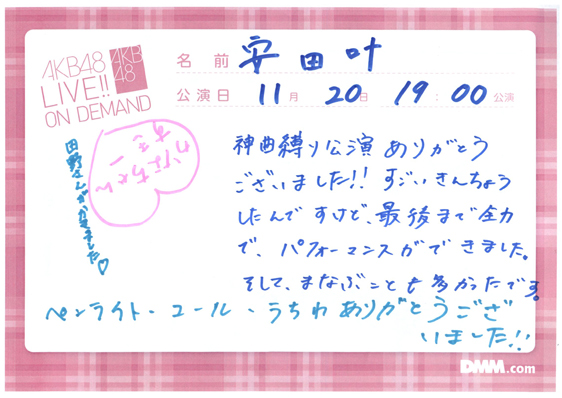 AKB48
LIVE!!
ON DEMAND
AKB
48
名前 安田叶
公演日 11月 20日 19:00公演
田野さんがかきました♡
神曲縛り公演ありがとう
ございました!! すごいきんちょう
したんですけど、最後まで全力
で、パフォーマンスができました。
そして、まなぶことも多かったです。
ペンライト・コール・うちわありがとうござ
いました!!
DMM.com